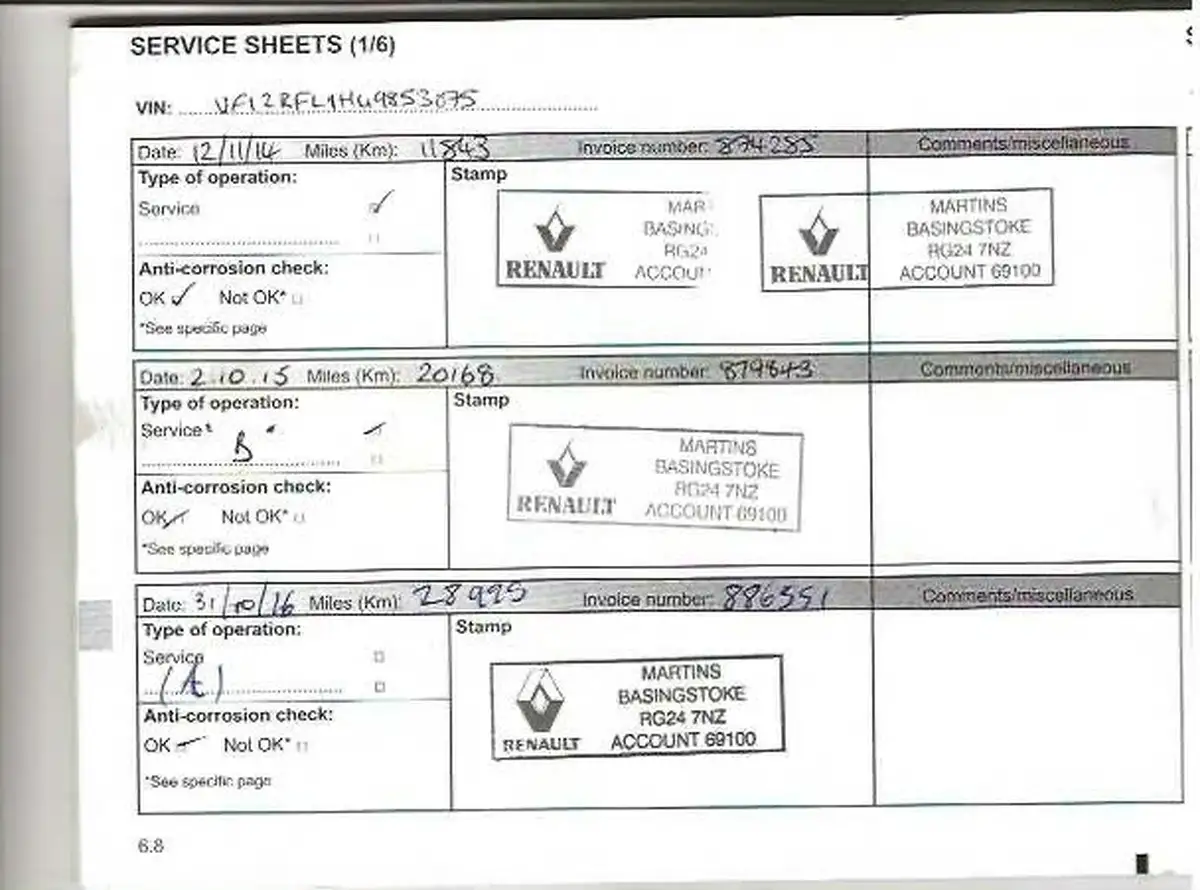 SERVICE SHEETS (1/6)
VIN: VF12RFL1H49853075
Date: 12/11/14 Miles (Km): 11843 Invoice number: 874285 Comments/miscellaneous
Type of operation:
Stamp
Service
Anti-corrosion check:
OK ✓ Not OK*
*See specific page
RENAULT
MAR
BASING
RG24
ACCOU
RENAULT
MARTINS
BASINGSTOKE
RG24 7NZ
ACCOUNT 69100
Date: 2.10.15 Miles (Km): 20168 Invoice number: 879843 Comments/miscellaneous
Type of operation:
Stamp
Service
B
Anti-corrosion check:
OK Not OK*
*See specific page
RENAULT
MARTINS
BASINGSTOKE
RG24 7NZ
ACCOUNT 69100
Date: 31/10/16 Miles (Km): 28995 Invoice number: 886551 Comments/miscellaneous
Type of operation:
Stamp
Service
(A)
Anti-corrosion check:
OK Not OK*
*See specific page
RENAULT
MARTINS
BASINGSTOKE
RG24 7NZ
ACCOUNT 69100
6.8